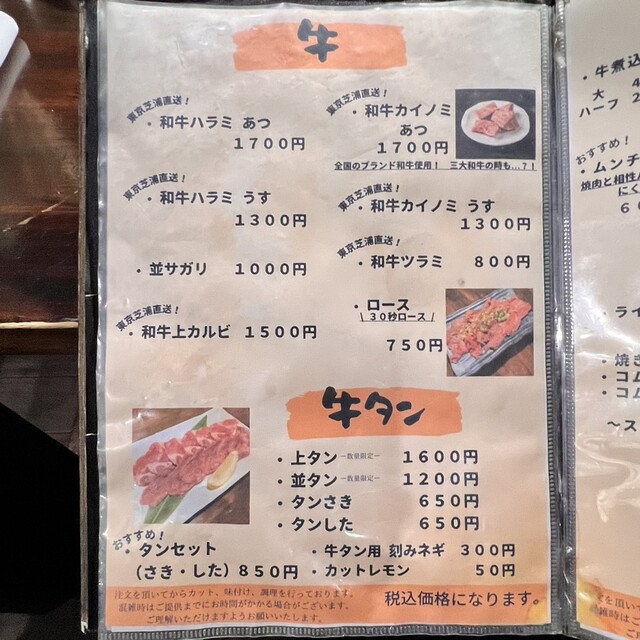 牛
東京芝浦直送！
・和牛ハラミ あつ
１７００円
東京芝浦直送！
・和牛カイノミ
あつ
１７００円
全国のブランド和牛使用！ 三大和牛の時も…？！
東京芝浦直送！
・和牛ハラミ うす
１３００円
東京芝浦直送！
・和牛カイノミ うす
１３００円
・並サガリ １０００円
東京芝浦直送！
・和牛ツラミ ８００円
東京芝浦直送！
・和牛上カルビ １５００円
・ロース
\ ３０秒ロース /
７５０円
牛タン
・上タン －数量限定－ １６００円
・並タン －数量限定－ １２００円
・タンさき ６５０円
・タンした ６５０円
おすすめ！
・タンセット
（さき・した）８５０円
・牛タン用 刻みネギ ３００円
・カットレモン ５０円
注文を頂いてからカット、味付け、調理を行っております。
混雑時はご提供までにお時間がかかる場合がございます。
ご理解いただけますようお願いいたします。
税込価格になります。
・牛煮込
大 ４
ハーフ ２
おすすめ！
・ムンチ
焼肉と相性
にく
６０
・ライ
・焼き
・コム
・コム
～ス
注文を頂いてから
混雑時はご
ご